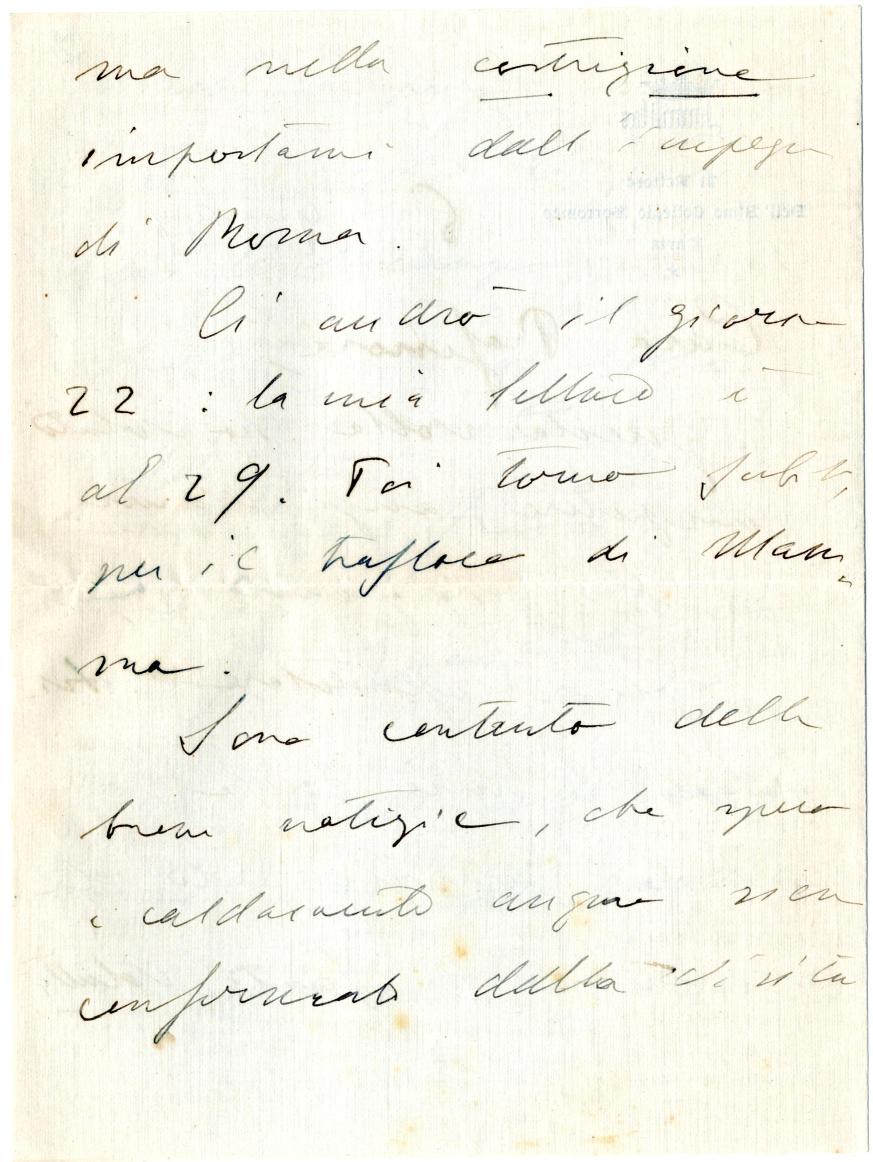 ma nella costrizione
impostami dall'impegno
di Roma.
Ci andrò il giorno
22 : la mia lettura è
al 29. Poi torno subito,
per il trasloco di Mam-
ma.
Sono contento delle
buone notizie, che spero
e caldamente auguro sien
confermate dalla visita